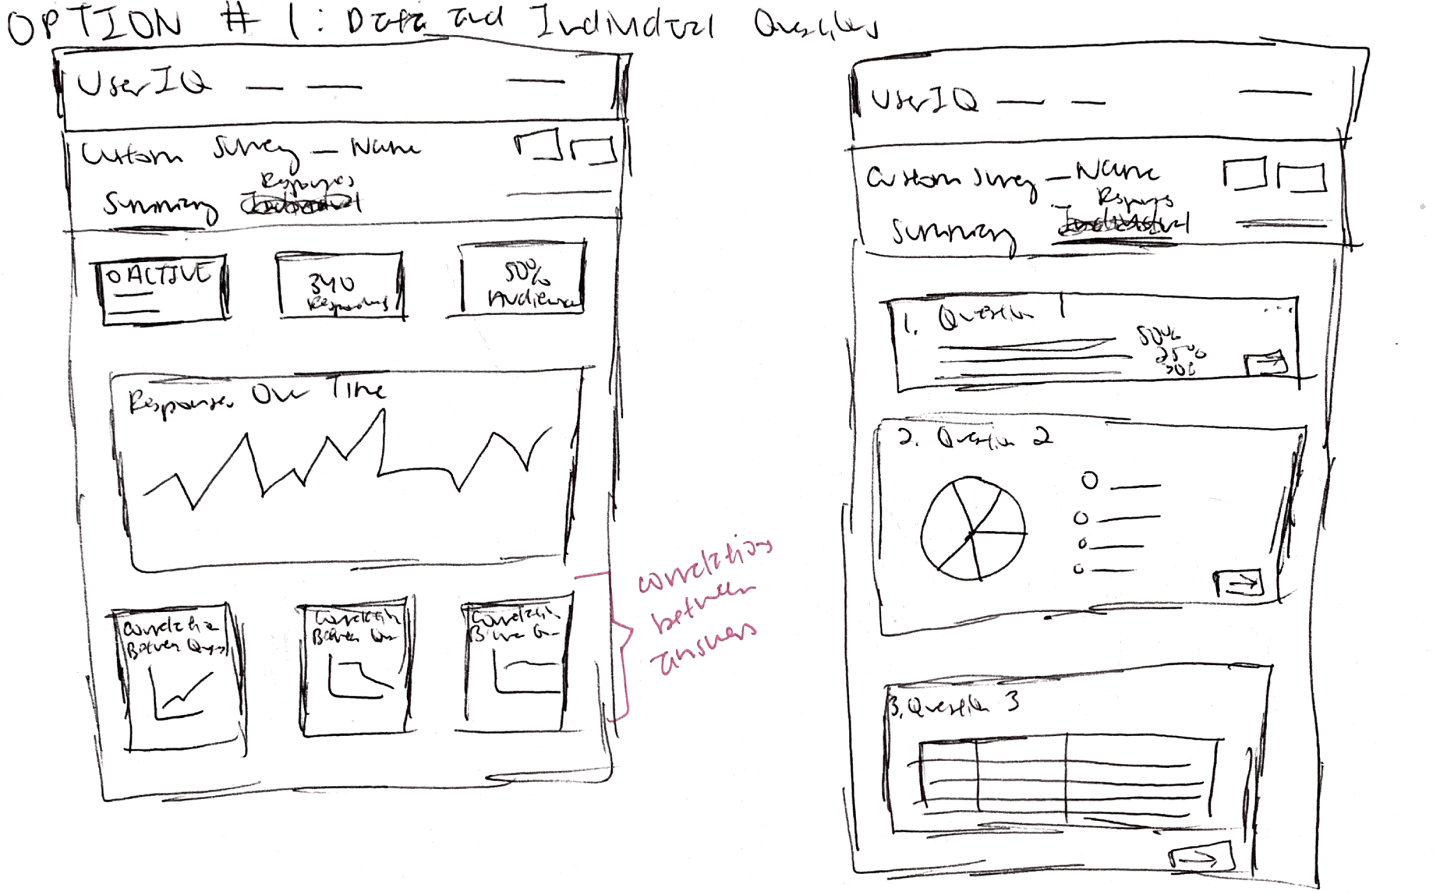 OPTION # 1: Data and Individual Questions
UserIQ
Custom Survey – Name
Responses
Summary
ACTIVE
340
Responses
50%
Audience
Responses Over Time
Correlation
Between Ques
Correlation
Between Que
Correlation
Between Qu
correlations
between
answers
UserIQ
Custom Survey – Name
Responses
Summary
1. Question 1
50%
25%
2. Question 2
3. Question 3